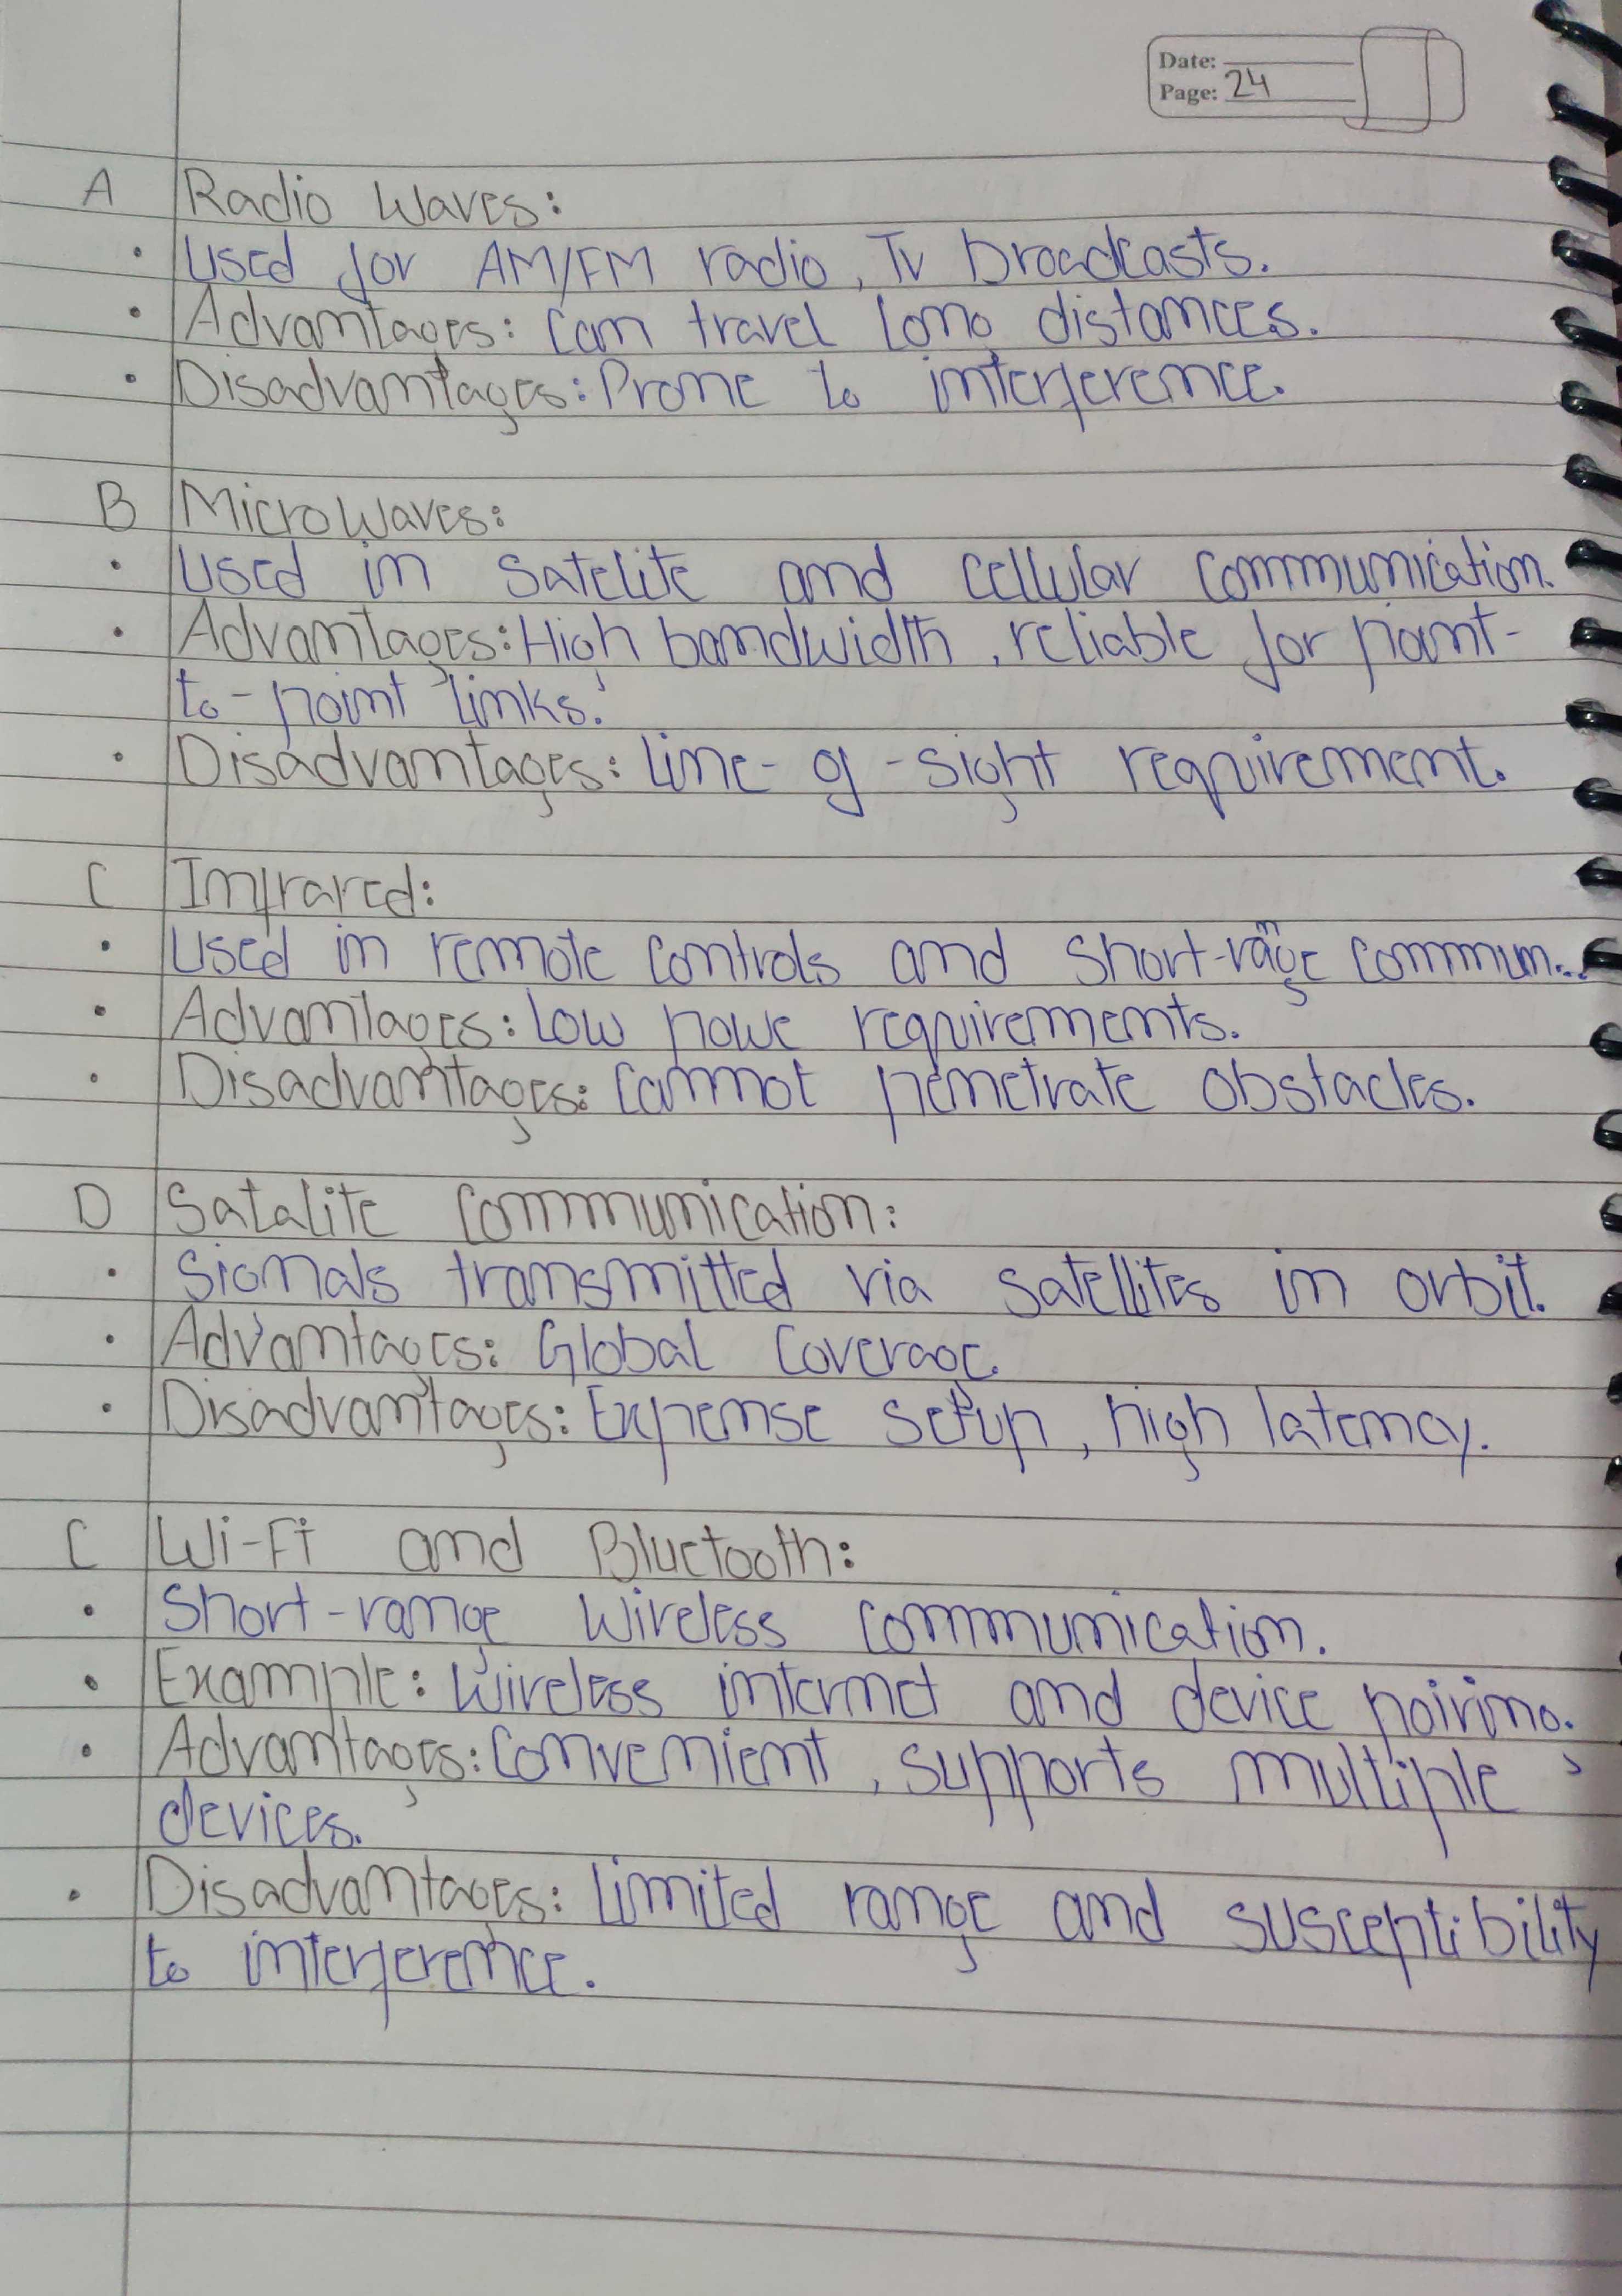 Date:
Page: 24
A Radio Waves:
• Used for AM/FM radio, Tv broadcasts.
• Advantages: Can travel long distances.
• Disadvantages: Prone to interference.
B Microwaves:
• Used in satelite and cellular communication.
• Advantages: High bandwidth, reliable for point-
to-point links.
• Disadvantages: Line-of-sight requirement.
C Infrared:
• Used in remote controls and short-range commun...
• Advantages: Low powe requirements.
• Disadvantages: Cannot penetrate obstacles.
D Satalite Communication:
• Signals transmitted via satellites in orbit.
• Advantages: Global Coverage.
• Disadvantages: Expense setup, high latency.
C Wi-Fi and Bluetooth:
• Short-range wireless communication.
• Example: Wireless internet and device pairing.
• Advantages: Convenient, supports multiple
devices.
• Disadvantages: Limited range and susceptibility
to interference.